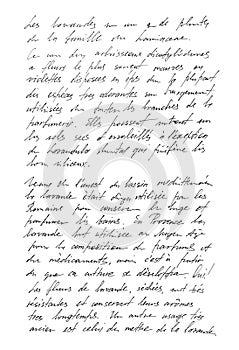 Les lavandes
de la famille des lamiacées.
Ce sont des arbrisseaux dicotylédones
à fleurs le plus souvent mauves ou
violettes disposées en épis, dont la plupart
des espèces très odorantes sont largement
utilisées dans toutes les branches de la
parfumerie. Elles poussent surtout sur
les sols secs et ensoleillés à l'exception
de lavandula qui préfère les
sols siliceux.
Venue de l'ouest du bassin méditerranéen
la lavande était déjà utilisée par les
Romains pour conserver le linge et
parfumer les bains. En Provence la
lavande fut utilisée au Moyen Age
pour la composition de parfums et
de médicaments, mais c'est à partir
du que sa culture se développa.
Les fleurs de lavande, séchées, sont très
résistantes et conservent leurs arômes
très longtemps. Un autre usage très
ancien est celui de mettre de la lavande